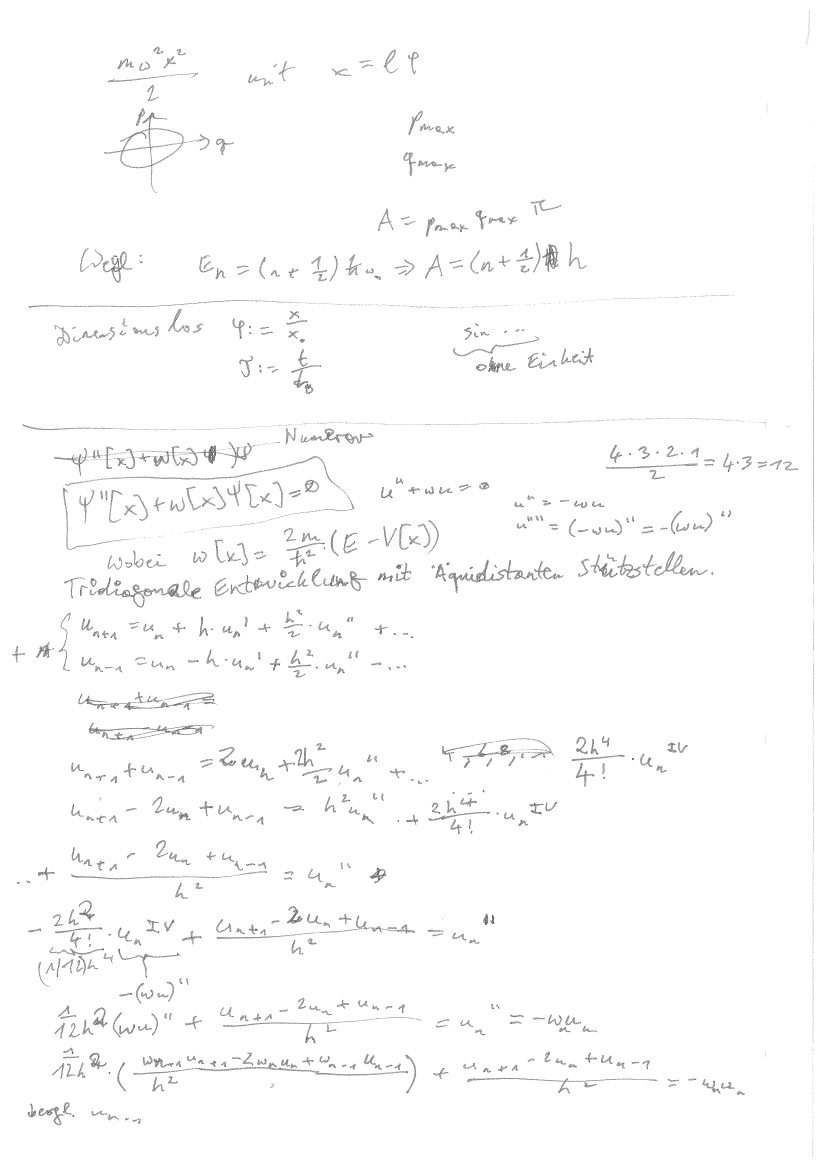 mω²x²/2 mit x = lφ
p
q
p max
q max
A = p max q max π
Wegl: Eₙ = (n + 1/2) ħω₀ ⇒ A = (n + 1/2) h
Dimensionslos φ := x/x₀ sin ...
τ := t/t₀ ohne Einheit
Numerov
ψ''[x] + w[x] ψ
(4·3·2·1)/2 = 4·3 = 12
ψ''[x] + w[x]ψ[x] = 0 u'' + wu = 0
u'' = -wu
u'''' = (-wu)'' = -(wu)''
wobei w[x] = 2m/ħ² · (E - V[x])
Tridiagonale Entwicklung mit Äquidistanten Stützstellen.
+ { uₙ₊₁ = uₙ + h·uₙ' + h²/2 · uₙ'' + ...
uₙ₋₁ = uₙ - h·uₙ' + h²/2 · uₙ'' - ...
uₙ₊₁ + uₙ₋₁ =
uₙ₊₁ - uₙ₋₁
uₙ₊₁ + uₙ₋₁ = 2uₙ + 2h²/2 uₙ'' + ... 4, 6, 8, ... 2h⁴/4! · uₙ^IV
uₙ₊₁ - 2uₙ + uₙ₋₁ = h²uₙ'' + 2h⁴/4! · uₙ^IV
..+ (uₙ₊₁ - 2uₙ + uₙ₋₁)/h² = uₙ''
- 2h²/4! · uₙ^IV + (uₙ₊₁ - 2uₙ + uₙ₋₁)/h² = uₙ''
(1/12)h⁴
-(wu)''
1/12 h² (wu)'' + (uₙ₊₁ - 2uₙ + uₙ₋₁)/h² = uₙ'' = -wₙuₙ
1/12 h² · ((wₙ₊₁uₙ₊₁ - 2wₙuₙ + wₙ₋₁uₙ₋₁)/h²) + (uₙ₊₁ - 2uₙ + uₙ₋₁)/h² = -wₙuₙ
bezgl. uₙ₋₁